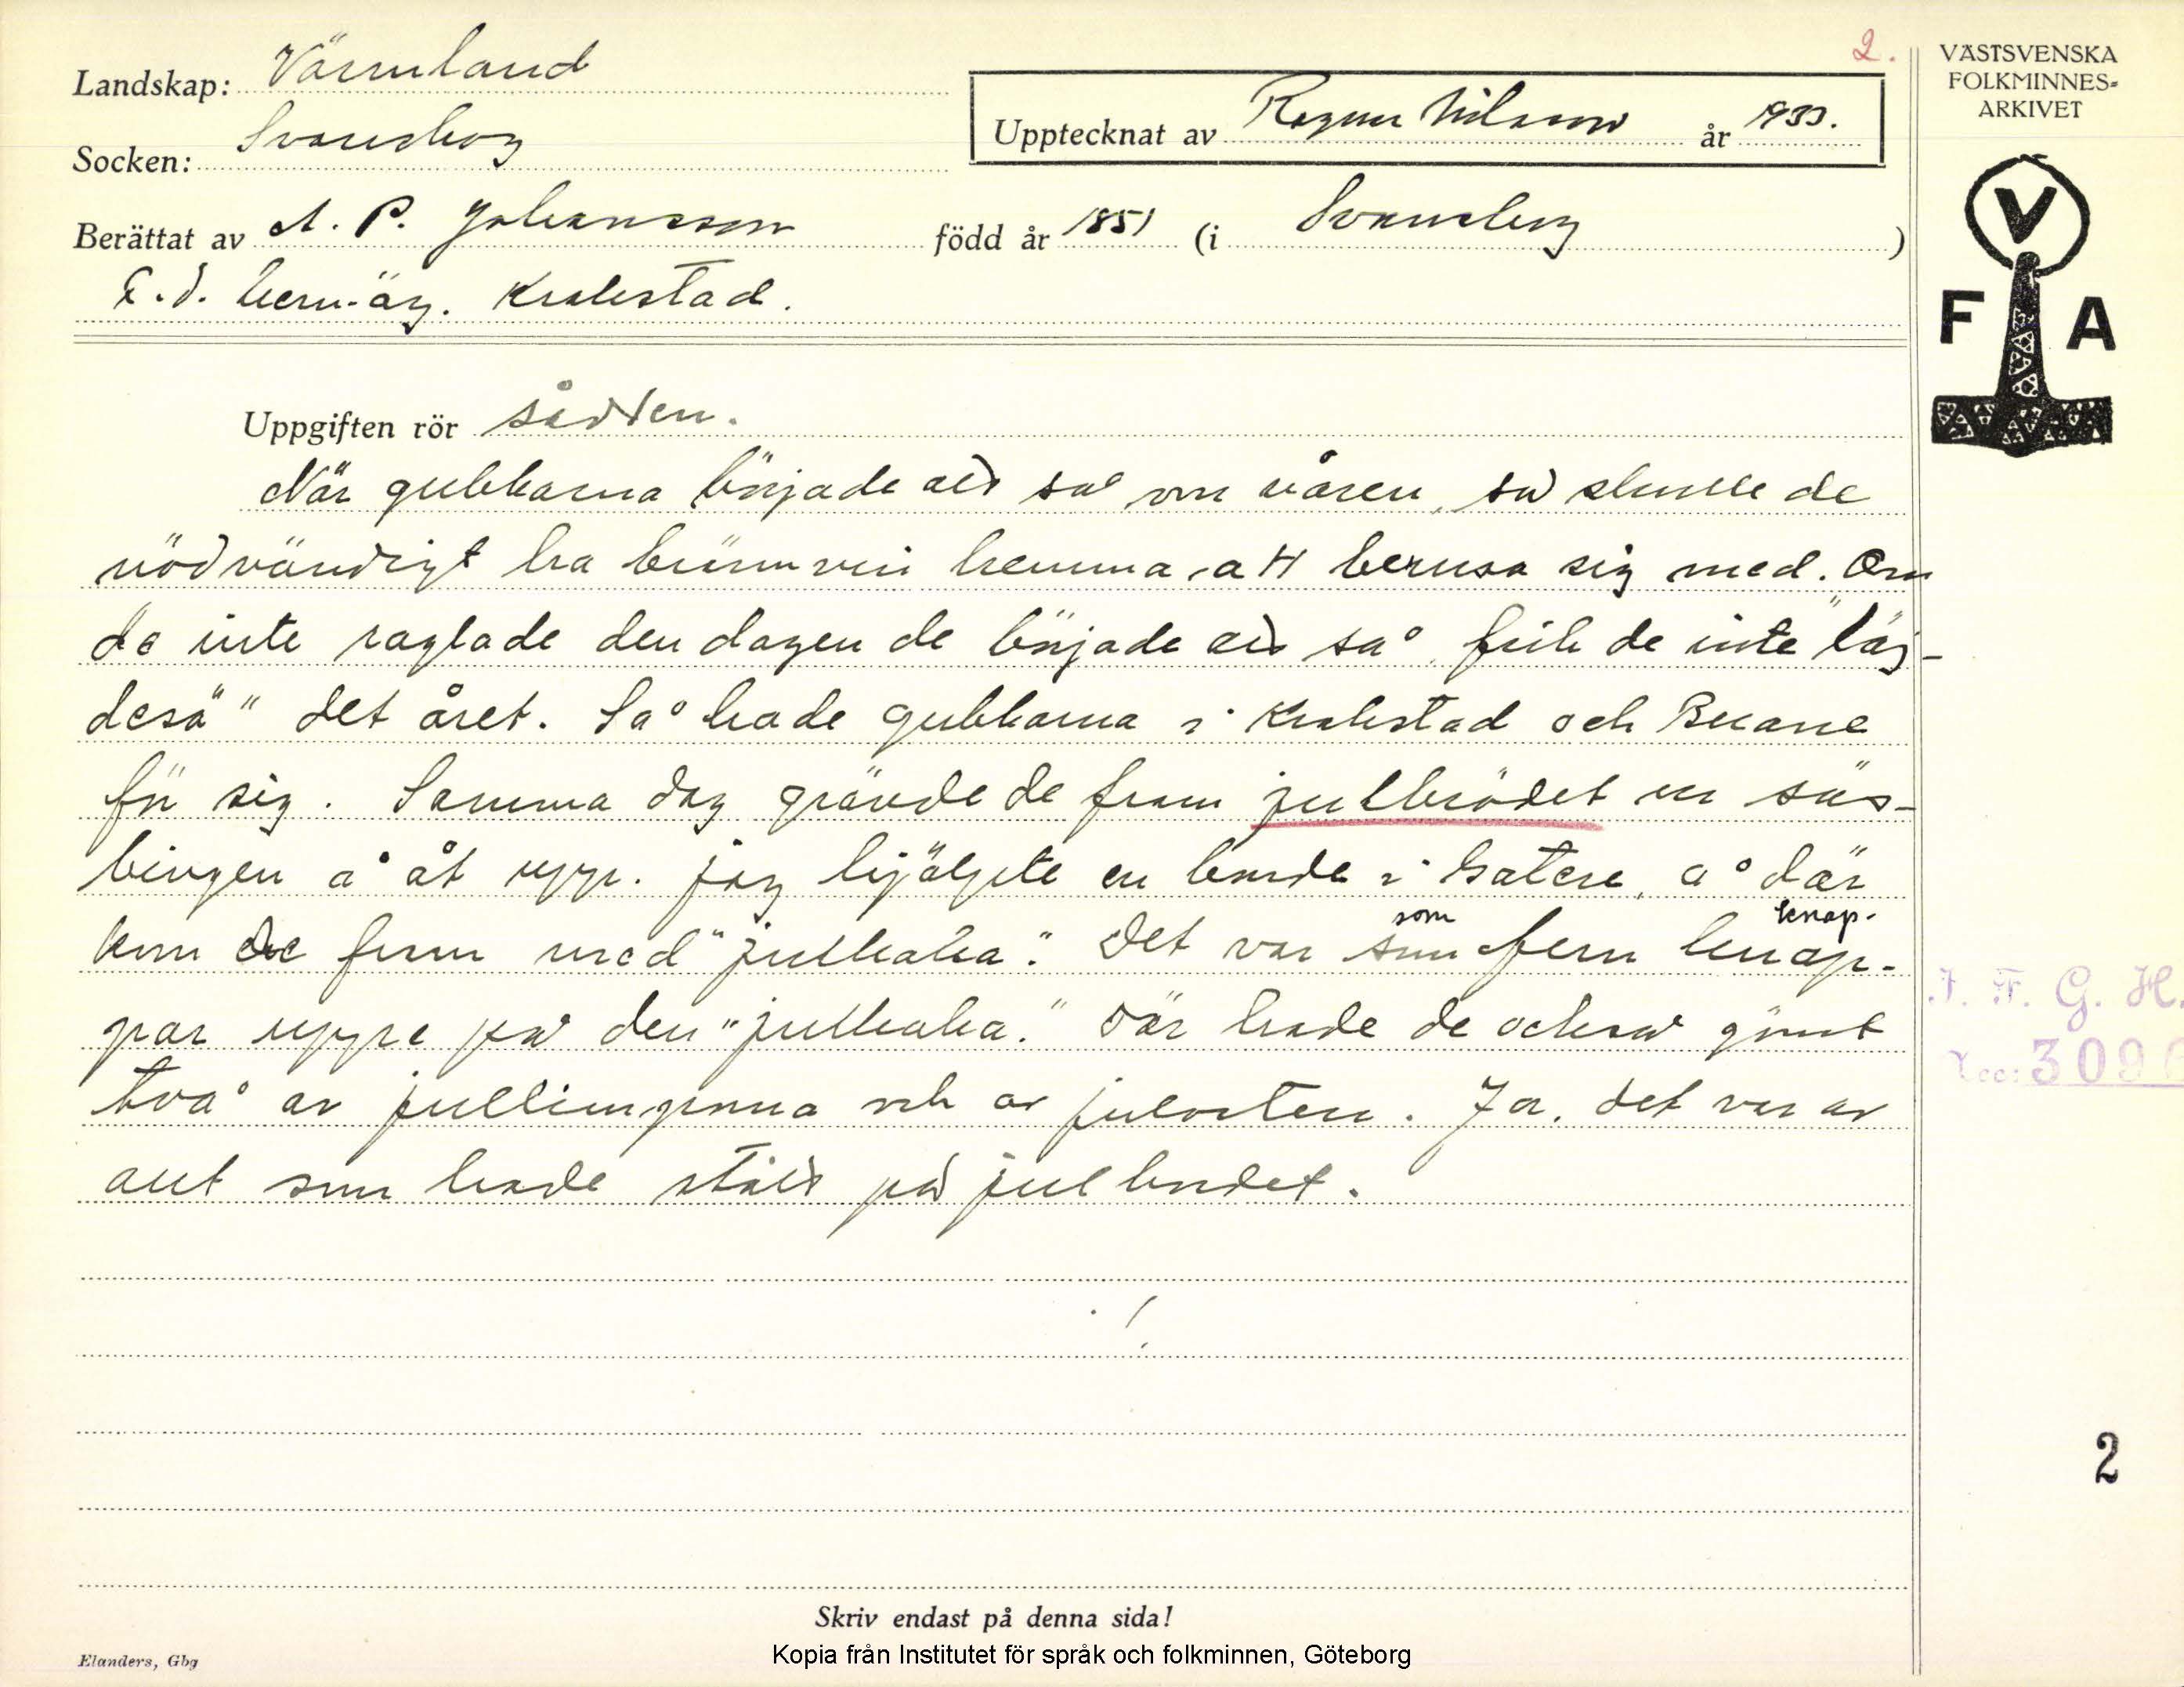 2.
Landskap: Värmland
Socken: Svanskog
Upptecknat av Ragnar Nilsson år 1933.
Berättat av A. P. Johansson född år 1851 (i Svanskog)
F.d. hem.äg. Krokstad.
VÄSTSVENSKA
FOLKMINNES-
ARKIVET
V
F A
Uppgiften rör sådden.
När gubbarna började att så om våren, så skulle de
nödvändigt ha brännvin hemma, att berusa sig med. Om
de inte raglade den dagen de började att så, fick de inte "läg-
desä" det året. Så hade gubbarna i Krokstad och Buane
för sig. Samma dag grävde de fram julbrödet ur säs-
bingen å åt upp. jag hjälpte en bonde i å där
kom de fram med "julkaka". Det var som fem knap-
som
knap.
par uppe på den "julkaka." Där hade de också gömt
två av jullimporna och av julosten. Ja, det var av
allt som hade stått på julbordet.
J. F. G. H.
Acc: 3096
2
Skriv endast på denna sida!
Kopia från Institutet för språk och folkminnen, Göteborg
Elanders, Gbg